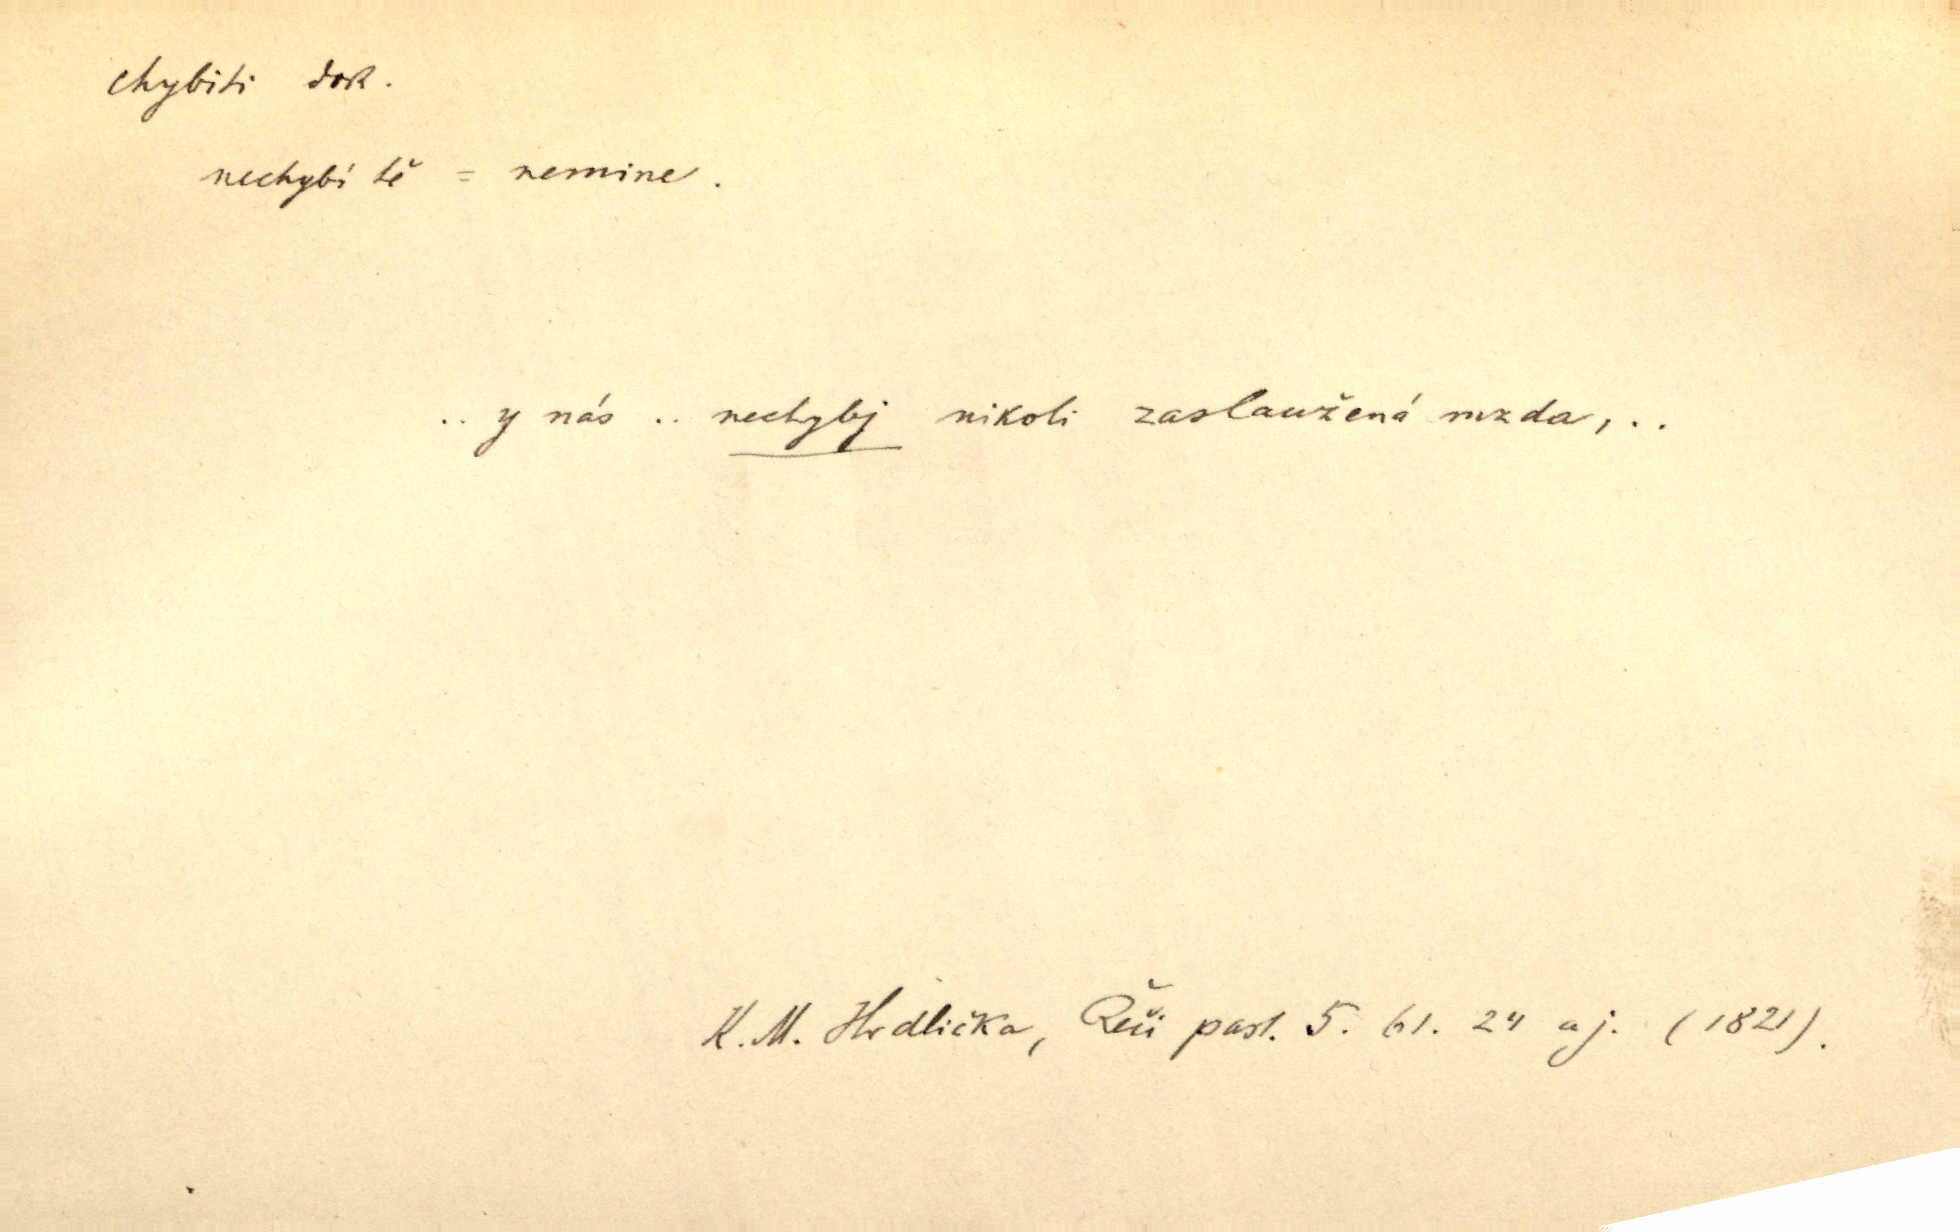 chybiti dok.
nechybí tě = nemine.
.. y nás .. nechybj nikoli zaslaužená mzda, ..
K. M. Hrdlička, Řeči past. 5. 61. 24 a j. (1821).